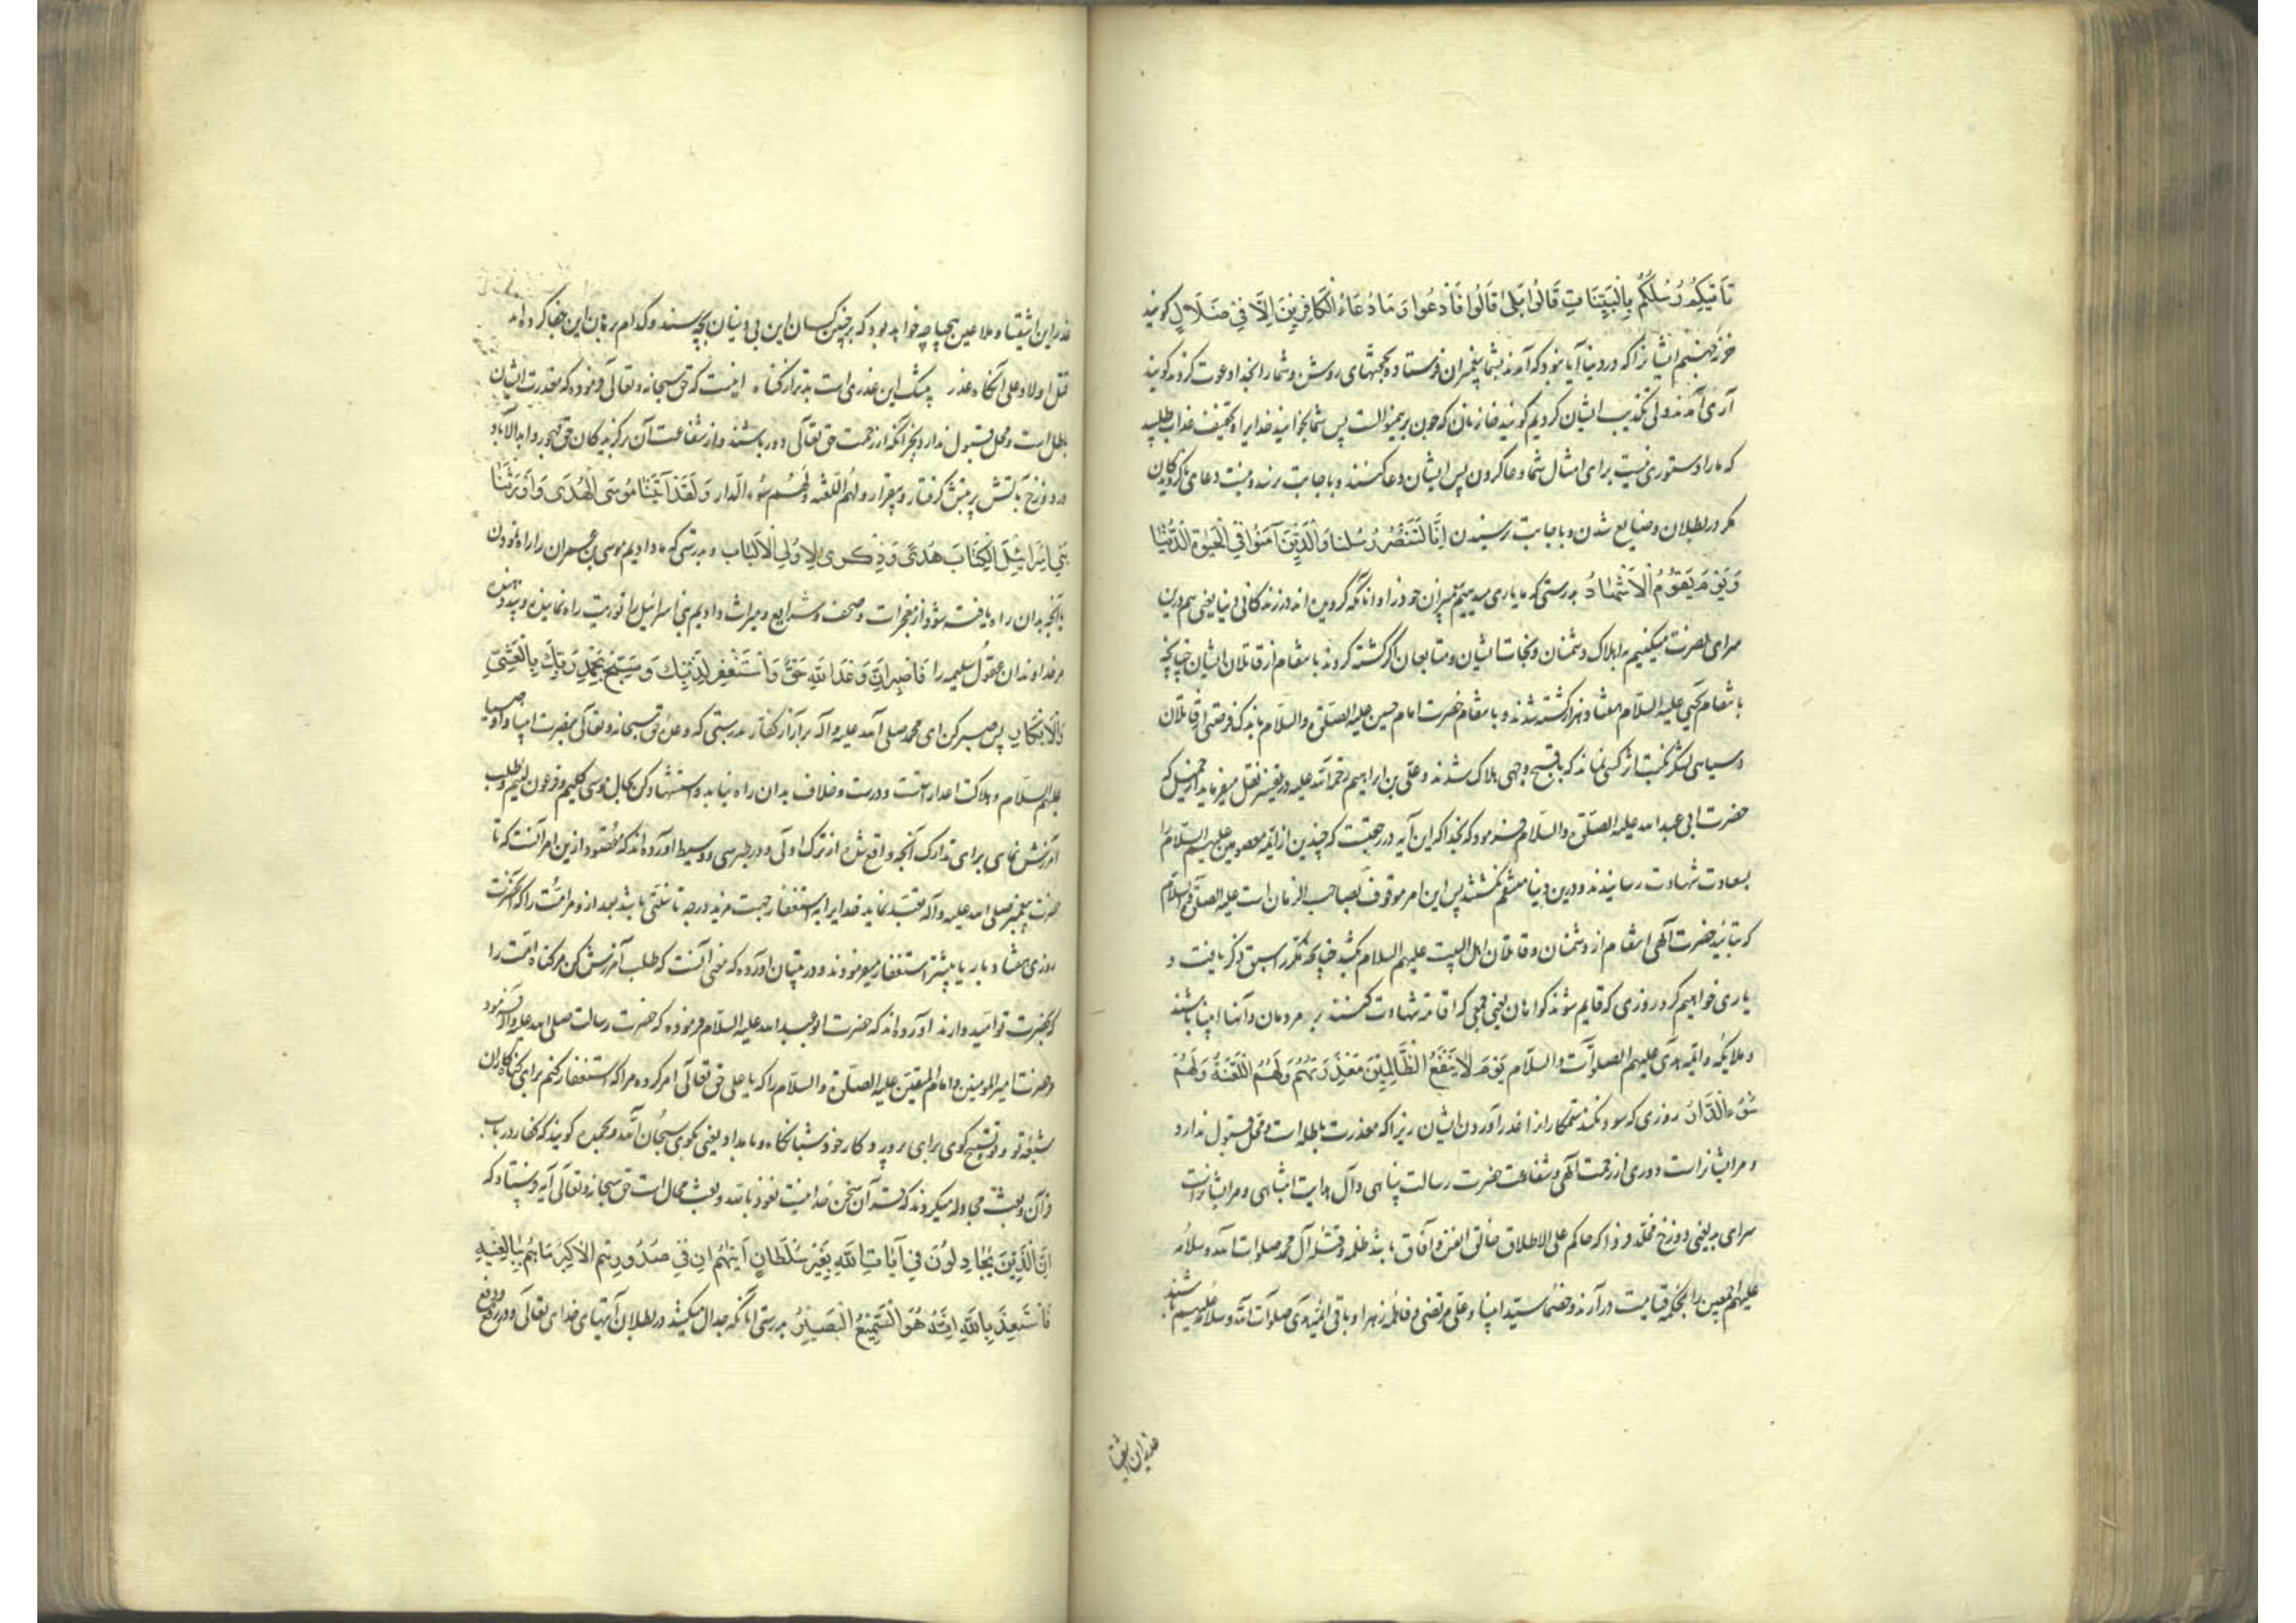 تَأتيكُم رُسُلُكُم بِالبَيِّنَاتِ قَالُوا بَلى قَالُوا فَادعُوا وَمَا دُعَاءُ الكَافِرِينَ اِلَّا فِي ضَلَالٍ کویند
خزنه جهنم ایشانرا که در دنیا آیا نبود که آمدند بشما پیغمبران فرستاده بحجتهای روشن و شما را بخدا دعوت کردند کویند
آری آمدند ولی تکذیب ایشان کردیم کویند خازنان که چون برین منوالست پس شما بخوانید خدایرا و تخفیف عذاب طلبید
که ما را دستوری نیست برای امثال شما دعا کردن پس ایشان دعا کنند و باجابت نرسد و نیست دعای ناکرویدکان
مکر در بطلان و ضایع شدن و باجابت نرسیدن اِنَّا لَنَنصُرُ رُسُلَنا وَالَّذِينَ آمَنُوا فِي الحَيوةِ الدُّنيَا
وَيَومَ يَقُومُ الاَشهَادُ بدرستی که ما یاری میدهیم پیغمبران خود را و آنانکه کرویده اند در زندکانی دنیا یعنی هم درین
سرای نصرت میکنیم به اهلاک دشمنان و نجات ایشان و متابعان اکر کشته کردند بانتقام از قاتلان ایشان چنانچه
بانتقام یحیی علیه السلام هفتاد هزار کشته شدند و بانتقام حضرت امام حسین علیه الصلوة والسلام باندک فرصتی از قاتلان
و سیاهی لشکر نکبت اثر کسی نماند که باقبح وجهی هلاک نشدند و علی بن ابراهیم رحمة الله علیه در تفسیر نقل میفرماید از جمیل که
حضرت ابی عبد الله علیه الصلوة والسلام فرمود که بخدا که این آیه در رجعتست که چندین از ائمه معصومین علیهم السلام را
بسعادت شهادت رسانیدند و درین دنیا منتقم نکشتند پس این امر موقوف بصاحب الزمان است علیه الصلوة والسلام
که بتائید حضرت آلهی انتقام از دشمنان و قاتلان اهل البیت علیهم السلام بکشد چنانچه مکرر اسبق ذکر یافت و
یاری خواهیم کرد روزی که قایم شوند کواهان یعنی جمعی که اقامه شهادت کنند بر مردمان و آنها انبیا باشند
و ملایکه و ائمه هدی علیهم الصلوات والسلام يَومَ لَا يَنفَعُ الظَّالِمِينَ مَعذِرَتُهُم وَلَهُمُ اللَّعنَةُ وَلَهُم
سُوءُ الدَّارِ روزی که سود نکند ستمکاران را عذر آوردن ایشان زیرا که معذرت باطله است و محل قبول ندارد
و مر ایشانراست دوری از رحمت آلهی و شفاعت حضرت رسالت پناهی و آل هدایت انتباهی و مر ایشانراست
سرای بد یعنی دوزخ مخلد و فردا که حاکم علی الاطلاق خالق انفس و آفاق باشد ظلمه و قتله آل محمد صلوات الله و سلامه
علیهم اجمعین را بمحکمه قیامت درآرند و خصما سید انبیا و علی مرتضی و فاطمه زهرا و باقی ائمه هدی صلوات الله و سلامه علیهم باشند
عذر این اشقیا
عذر این اشقیا و ملاعین بیحیا چه خواهد بود که بر چنین کسان این بی دینان بچه سند و کدام برهان این جفا کرده اند
قتل اولاد علی آنکاه عذر بیشک این عذری است بدتر از کناه اینست که حق سبحانه و تعالی فرموده که معذرت ایشان
باطل است و محل قبول ندارد بجز آنکه از رحمت حق تعالی دور باشند و از شفاعت آن برکزیدکان حق مهجور و ابد الآباد
در دوزخ بآتش پر تبش کرفتار و بیقرار و لهم اللعنه و لهم سوء الدار وَلَقَد آتَينَا مُوسَى الهُدَى وَاَورَثنَا
بَنِي اِسرَائِيلَ الكِتَابَ هُدىً وَذِكرى لِاُولِي الاَلبَاب و بدرستی که ما دادیم موسی بن عمران را راه نمودن
یا آنچه بدان راه یافته شود از معجزات و صحف و شرایع و میراث دادیم بنی اسرائیل را توریت راه نماینده و پند دهنده
مر خداوندان عقول سلیمه را فَاصبِر اِنَّ وَعدَ اللَّهِ حَقٌّ وَاستَغفِر لِذَنبِكَ وَسَبِّح بِحَمدِ رَبِّكَ بِالعَشِيِّ
وَالاِبكَارِ پس صبر کن ای محمد صلی الله علیه و آله بر آزار کفار بدرستی که وعده حق سبحانه و تعالی بنصرت انبیا و اوصیا
علیهم السلام و هلاکت اعدا راست و درست و خلاف بدان راه نیابد و استشهاد کن بحال موسی کلیم و فرعون لئیم و طلب
آمرزش نمای برای تدارک آنچه واقع شده از ترک اولی و در طبرسی و وسیط آورده اند که مقصود ازین امر آنست که تا
حضرت پیغمبر صلی الله علیه و آله تعبد نماید خدایرا باستغفار جهت مزید درجه تا سنتی باشد بعد از و مر امت را که آنحضرت
روزی هفتاد بار یا بیشتر استغفار میفرمودند و در تبیان آورده که معنی آنست که طلب آمرزش کن مر کناه امت را
که بحضرت تو امید دارند آورده اند که حضرت ابو عبد الله علیه السلام فرموده که حضرت رسالت صلی الله علیه و آله فرمود
حضرت امیر المومنین و امام المتقین علیه الصلوة والسلام را که یا علی حق تعالی امر کرده مرا که استغفار کنم برای کناهکاران
شیعه تو و تسبیح کوی برای پرورد کار خود شبانکاه و بامداد یعنی بکوی سبحان الله و بحمده کویند که کفار در باب
قرآن و بعثت مجادله میکردند که قرآن سخن خدا نیست نعوذ بالله و بعث محال است حق سبحانه و تعالی آیه فرستاد که
اِنَّ الَّذِينَ يُجَادِلُونَ فِي آيَاتِ اللَّهِ بِغَيرِ سُلطَانٍ اَتيهُم اِن فِي صُدُورِهِم اِلَّا كِبرٌ مَا هُم بِبَالِغِيهِ
فَاستَعِذ بِاللَّهِ اِنَّهُ هُوَ السَّمِيعُ البَصِيرُ بدرستی آنانکه جدال میکنند در بطلان آیتهای خدای تعالی و در دفع